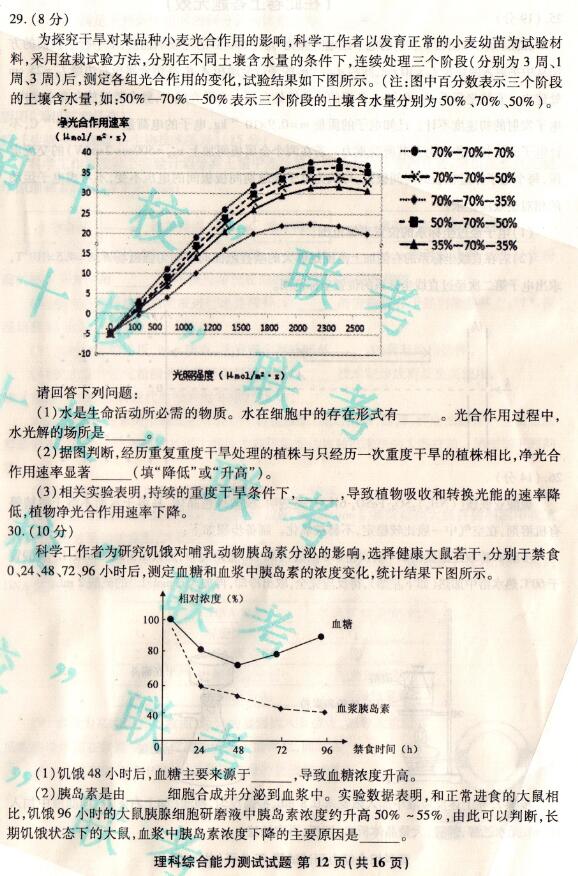 29.(8分)
为探究干旱对某品种小麦光合作用的影响,科学工作者以发育正常的小麦幼苗为试验材
料,采用盆栽试验方法,分别在不同土壤含水量的条件下,连续处理三个阶段(分别为3周、1
周、3周)后,测定各组光合作用的变化,试验结果如下图所示。(注:图中百分数表示三个阶段
的土壤含水量,如:50%—70%—50%表示三个阶段的土壤含水量分别为50%、70%、50%)。
净光合作用速率
(μmol/ m²·s)
40
35
30
25
20
15
10
5
0
-5
-10
0 100 500 1000 1200 1500 1800 2000 2300 2500
光照强度(μmol/m²·s)
70%—70%—70%
70%—70%—50%
70%—70%—35%
50%—70%—50%
35%—70%—35%
请回答下列问题:
(1)水是生命活动所必需的物质。水在细胞中的存在形式有______。光合作用过程中,
水光解的场所是______。
(2)据图判断,经历重复重度干旱处理的植株与只经历一次重度干旱的植株相比,净光合
作用速率显著______(填“降低”或“升高”)。
(3)相关实验表明,持续的重度干旱条件下,______,导致植物吸收和转换光能的速率降
低,植物净光合作用速率下降。
30.(10分)
科学工作者为研究饥饿对哺乳动物胰岛素分泌的影响,选择健康大鼠若干,分别于禁食
0、24、48、72、96小时后,测定血糖和血浆中胰岛素的浓度变化,统计结果下图所示。
相对浓度(%)
100
80
60
40
0 24 48 72 96 禁食时间(h)
血糖
血浆胰岛素
(1)饥饿48小时后,血糖主要来源于______,导致血糖浓度升高。
(2)胰岛素是由______细胞合成并分泌到血浆中。实验数据表明,和正常进食的大鼠相
比,饥饿96小时的大鼠胰腺细胞研磨液中胰岛素浓度约升高50%~55%,由此可以判断,长
期饥饿状态下的大鼠,血浆中胰岛素浓度下降的主要原因是______。
理科综合能力测试试题 第12页(共16页)
南十校”联考
十校”联考
十校”联考
校”联考
”联考